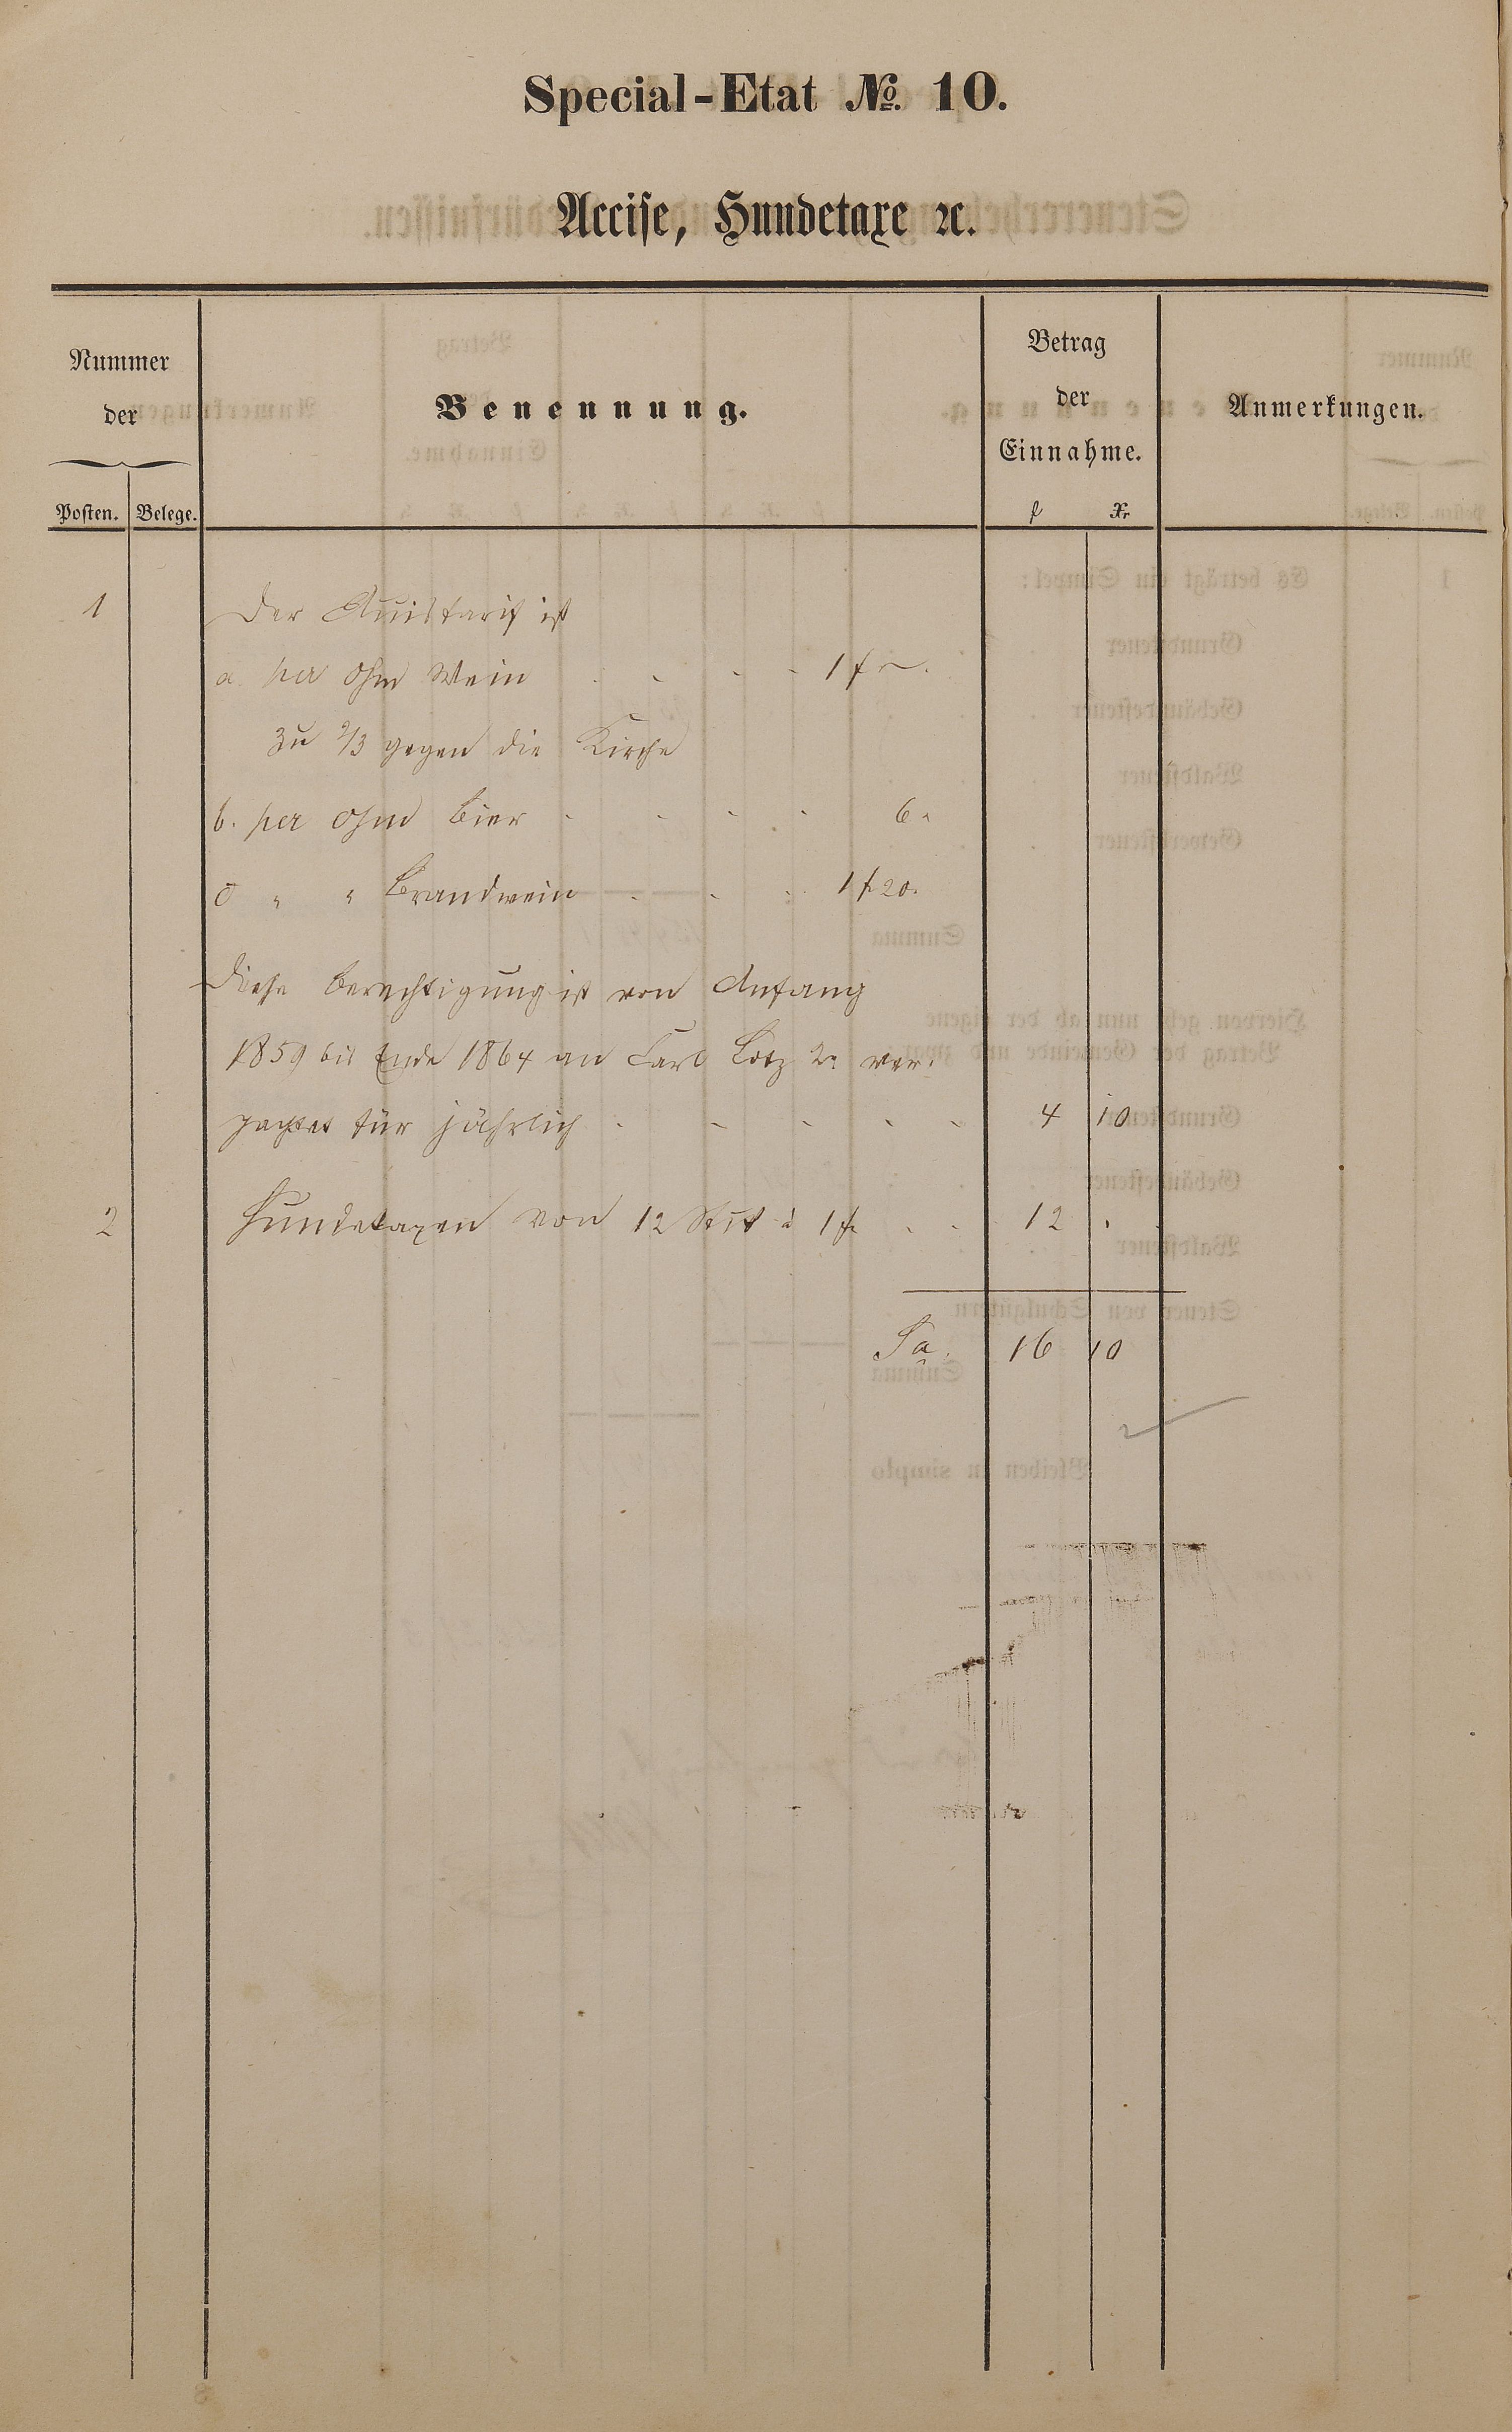 Special-Etat No. 10.
Accise, Hundetaxe ꝛc.
Nummer
der
Posten. Belege.
Benennung.
Betrag
der
Einnahme.
f Xr
Anmerkungen.
1 Der Accistarif ist
a. per Ohm Wein 1 f –.
zu 2/3 gegen die Kirche
b. per Ohm Bier 6.
c " " Brandwein 1 f 20.
Diese Berechtigung ist von Anfang
1859 bis Ende 1864 an Carl Lotz 2r ver-
pachtet für jährlich 4 10
2 Hundetaxen von 12 Stck à 1 f 12 .
Sa. 16 10